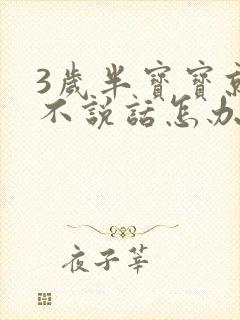 3歲半寶寶
不說話怎办
夜子莘